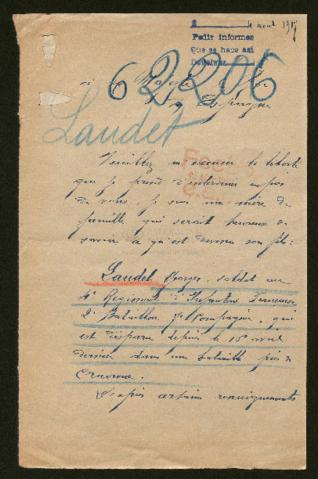 4 aout 1917
Pedir informes
Que se hace asi
62206
à Sa Majesté le Roi
d'Espagne
Laudet
Veuillez m'excuser la liberté
que je prend d'intervenir auprès
de vous, je suis une mère de
famille qui serait heureuse de
savoir ce qu'est devenu son fils:
Laudet Georges, soldat au
4e Regiment d'Infanterie
2e Bataillon 7e Compagnie, qui
est disparu depuis le 16 avril
dernier dans une bataille près de
Craonne.
D'après certains renseignements